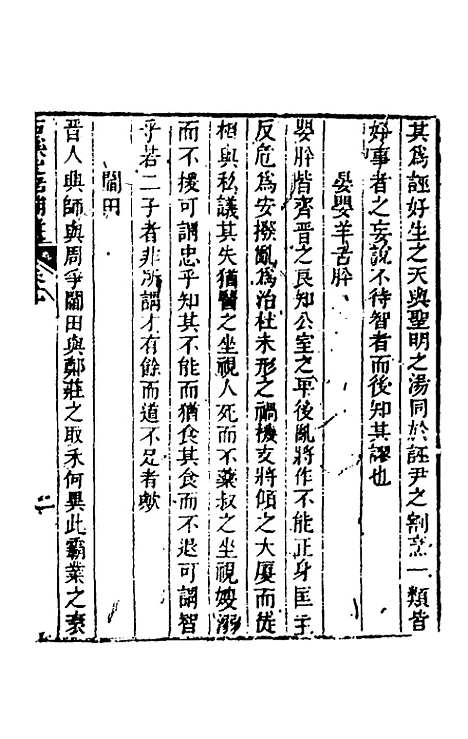 其爲誣好生之天與聖明之湯同於誣尹之割烹一類皆
好事者之妄說不待智者而後知其謬也
晏嬰羊舌肸
嬰肸皆齊晉之良知公室之卑後亂將作不能正身匡主
反危爲安撥亂爲治杜未形之禍機支將傾之大廈而徒
相與私議其失猶醫之坐視人死而不藥叔之坐視嫂溺
而不援可謂忠乎知其不能而猶食其食而不退可謂智
乎若二子者非所謂才有餘而道不足者歟
閻田
晉人興師與周爭閻田與鄭莊之取禾何異此霸業之衰